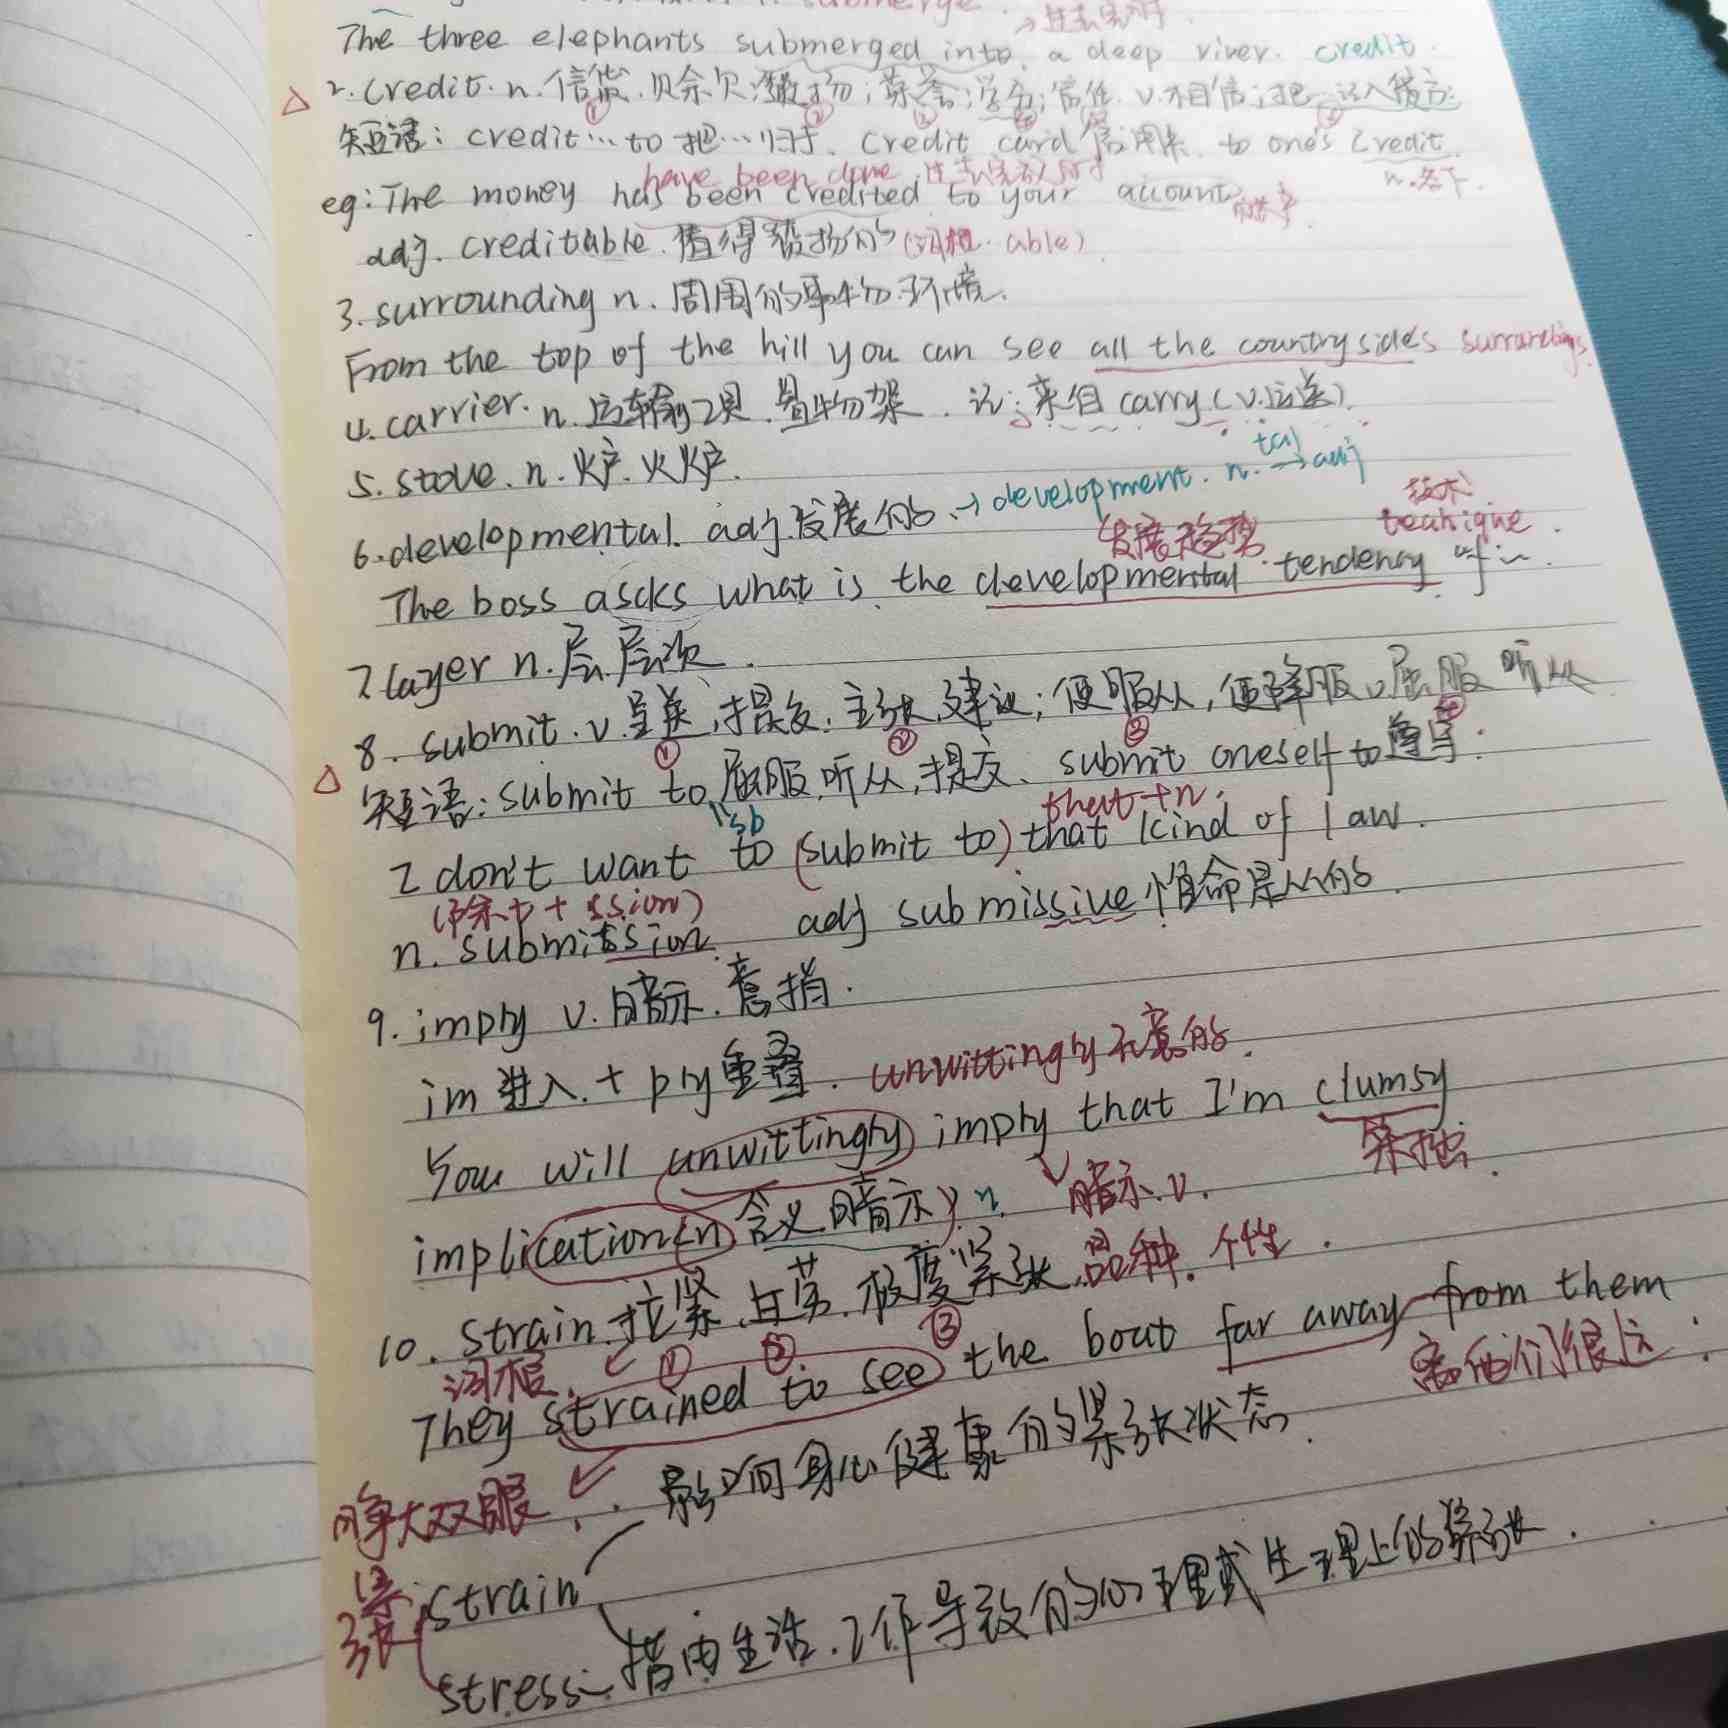 submerge.
The three elephants submerged into a deep river. credit.
2. credit. n. 信贷. 赊欠; 赞扬; 荣誉; 学分; 信任. v. 相信; 把…记入贷方
① ② ③ ④
短语: credit…to 把…归于. credit card 信用卡. to one's credit
have been done n. 名下.
eg: The money has been credited to your account
adj. creditable. 值得赞扬的 (词根. able)
3. surrounding n. 周围的事物. 环境.
From the top of the hill you can see all the countrysides surroundings.
4. carrier. n. 运输工具. 置物架. 记: 来自 carry (v. 运送).
5. stove. n. 炉. 火炉.
6. developmental. adj. 发展的. → development. n. tal → adj
发展趋势 技术 technique.
The boss ascks what is the developmental tendency of ~.
7 layer n. 层. 层次.
8. submit. v. 呈送, 提交. 主张, 建议; 使服从, 使降服 v. 屈服 听从
① ② ③ ④
短语: submit to 屈服, 听从, 提交. submit oneself to 遵守.
sb that+n.
I don't want to (submit to) that kind of law.
(除t + ssion)
n. submission. adj submissive 惟命是从的.
9. imply v. 暗示. 意指.
im 进入. + ply 重叠. unwittingly 不意的.
You will unwittingly imply that I'm clumsy.
暗示. v. 笨拙.
implication (n 含义. 暗示) n.
10. strain. 拉紧. 过劳. 极度紧张. 品种. 个性.
词根. ① ② ③
They strained to see the boat far away from them
离他们很远.
睁大双眼. 影响身心健康的紧张状态.
紧张 strain
stress: 指由生活. 工作导致的心理或生理上的紧张.